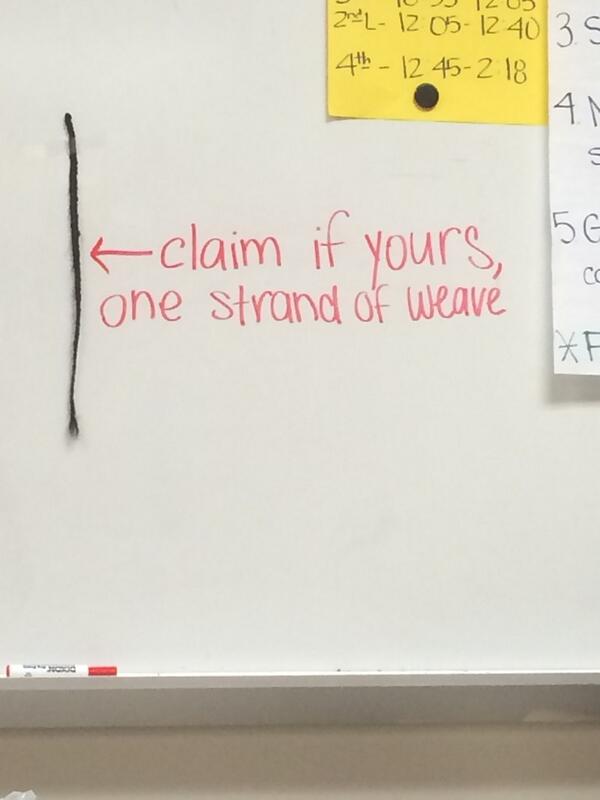 2nd L - 12 05 - 12 40
4th - 12 45 - 2 18
3. S
4. N
s
5 G
co
* F
← claim if yours,
one strand of weave
DIXON